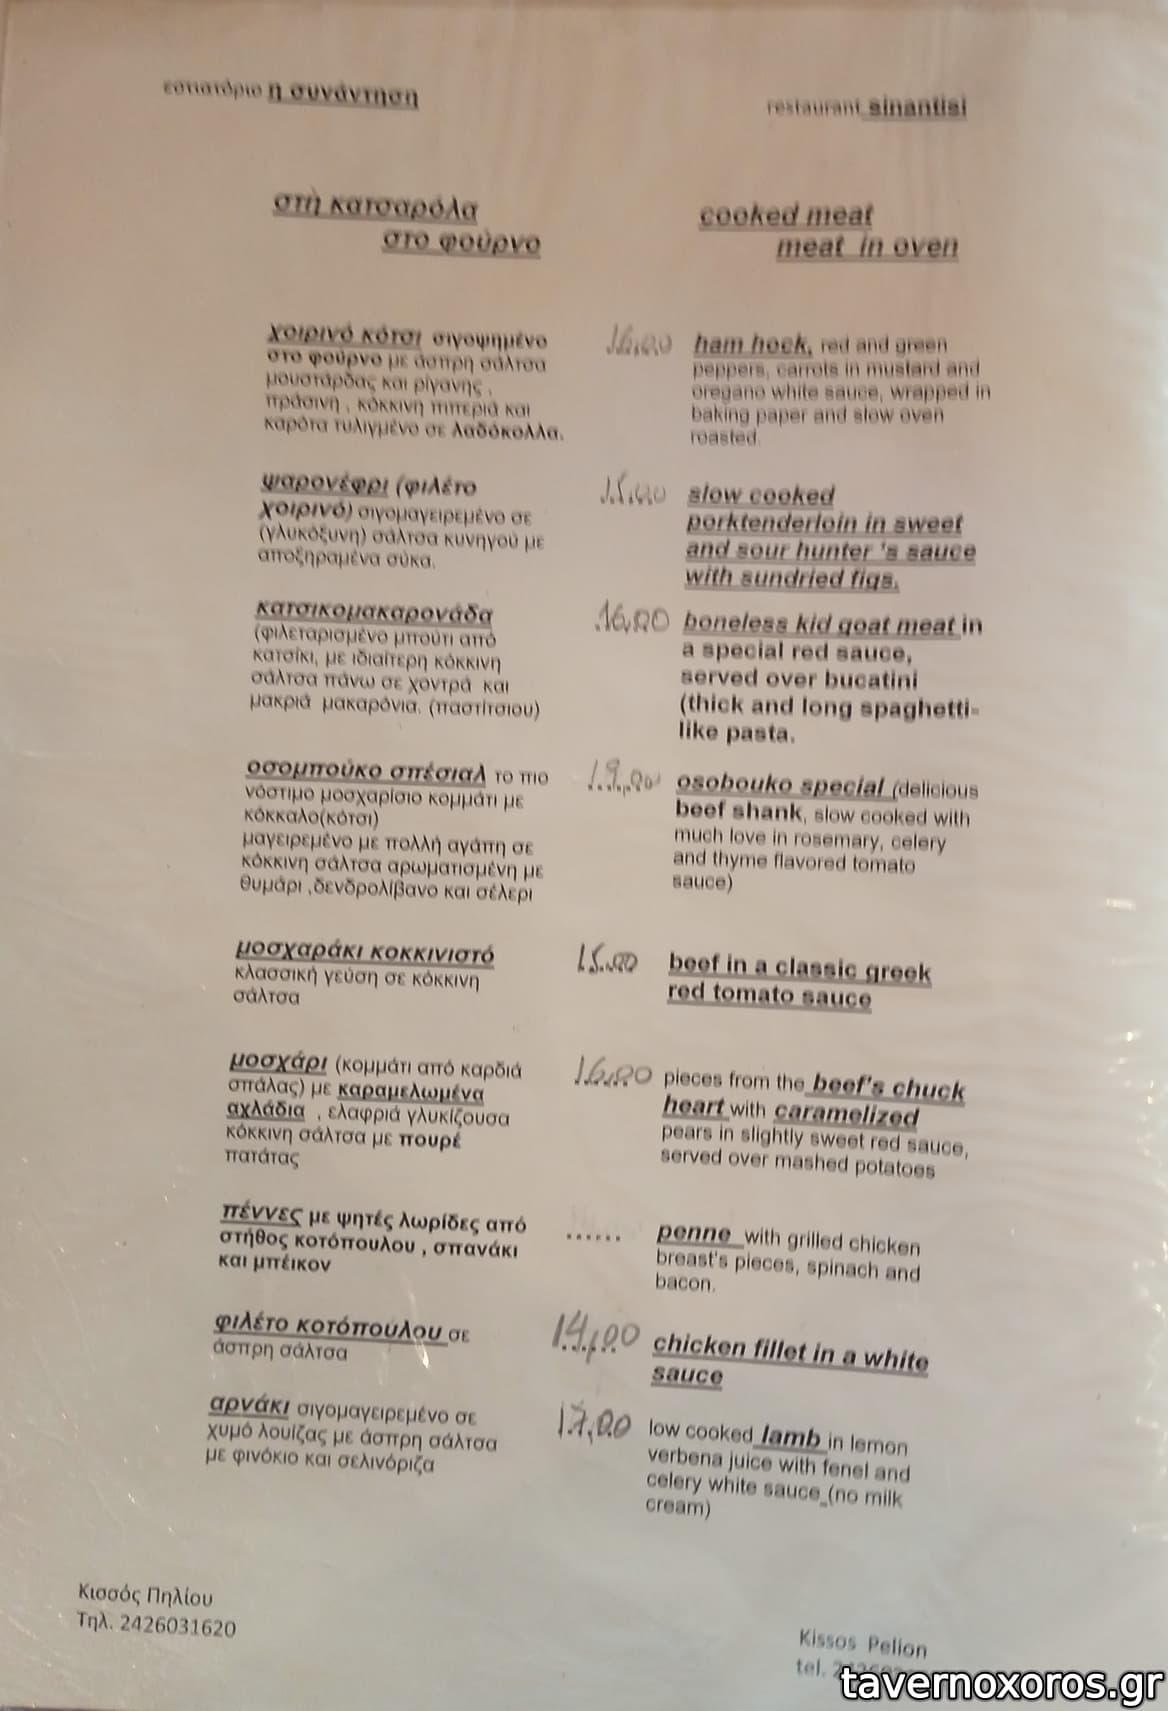 εστιατόριο η συνάντηση
restaurant sinantisi
στη κατσαρόλα
στο φούρνο
cooked meat
meat in oven
χοιρινό κότσι σιγοψημένο
στο φούρνο με άσπρη σάλτσα
μουστάρδας και ρίγανης ,
πράσινη , κόκκινη πιπεριά και
καρότα τυλιγμένο σε λαδόκολλα.
16,00
ham hock, red and green
peppers, carrots in mustard and
oregano white sauce, wrapped in
baking paper and slow oven
roasted.
ψαρονέφρι (φιλέτο
χοιρινό) σιγομαγειρεμένο σε
(γλυκόξυνη) σάλτσα κυνηγού με
αποξηραμένα σύκα.
15,00
slow cooked
porktenderloin in sweet
and sour hunter 's sauce
with sundried figs.
κατσικομακαρονάδα
(φιλεταρισμένο μπούτι από
κατσίκι, με ιδιαίτερη κόκκινη
σάλτσα πάνω σε χοντρά και
μακριά μακαρόνια. (παστίτσιου)
16,00
boneless kid goat meat in
a special red sauce,
served over bucatini
(thick and long spaghetti-
like pasta.
οσομπούκο σπέσιαλ το πιο
νόστιμο μοσχαρίσιο κομμάτι με
κόκκαλο(κότσι)
μαγειρεμένο με πολλή αγάπη σε
κόκκινη σάλτσα αρωματισμένη με
θυμάρι ,δενδρολίβανο και σέλερι
19,00
osobouko special (delicious
beef shank, slow cooked with
much love in rosemary, celery
and thyme flavored tomato
sauce)
μοσχαράκι κοκκινιστό
κλασσική γεύση σε κόκκινη
σάλτσα
15,00
beef in a classic greek
red tomato sauce
μοσχάρι (κομμάτι από καρδιά
σπάλας) με καραμελωμένα
αχλάδια , ελαφριά γλυκίζουσα
κόκκινη σάλτσα με πουρέ
πατάτας
16,00
pieces from the beef's chuck
heart with caramelized
pears in slightly sweet red sauce,
served over mashed potatoes
πέννες με ψητές λωρίδες από
στήθος κοτόπουλου , σπανάκι
και μπέικον
......
penne with grilled chicken
breast's pieces, spinach and
bacon.
φιλέτο κοτόπουλου σε
άσπρη σάλτσα
14,00
chicken fillet in a white
sauce
αρνάκι σιγομαγειρεμένο σε
χυμό λουίζας με άσπρη σάλτσα
με φινόκιο και σελινόριζα
17,00
low cooked lamb in lemon
verbena juice with fenel and
celery white sauce (no milk
cream)
Κισσός Πηλίου
Τηλ. 2426031620
Kissos Pelion
tel.
tavernoxoros.gr